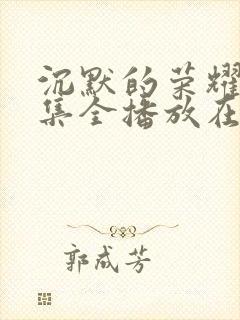 沉默的荣耀
集全播放在
郭成芳